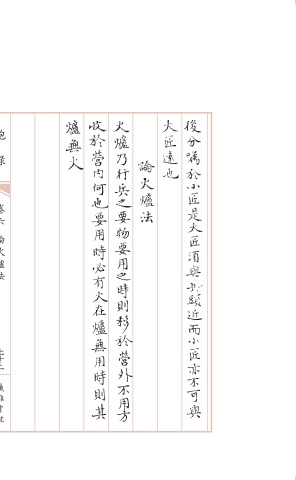 後分囑於小匠是大匠須與此顯近而小匠亦不可與
大匠遠也
論火爐法
火爐乃行兵之要物要用之時則移於營外不用方
收於營内何也要用時必有火在爐無用時則其
爐無火
卷六 論火爐法